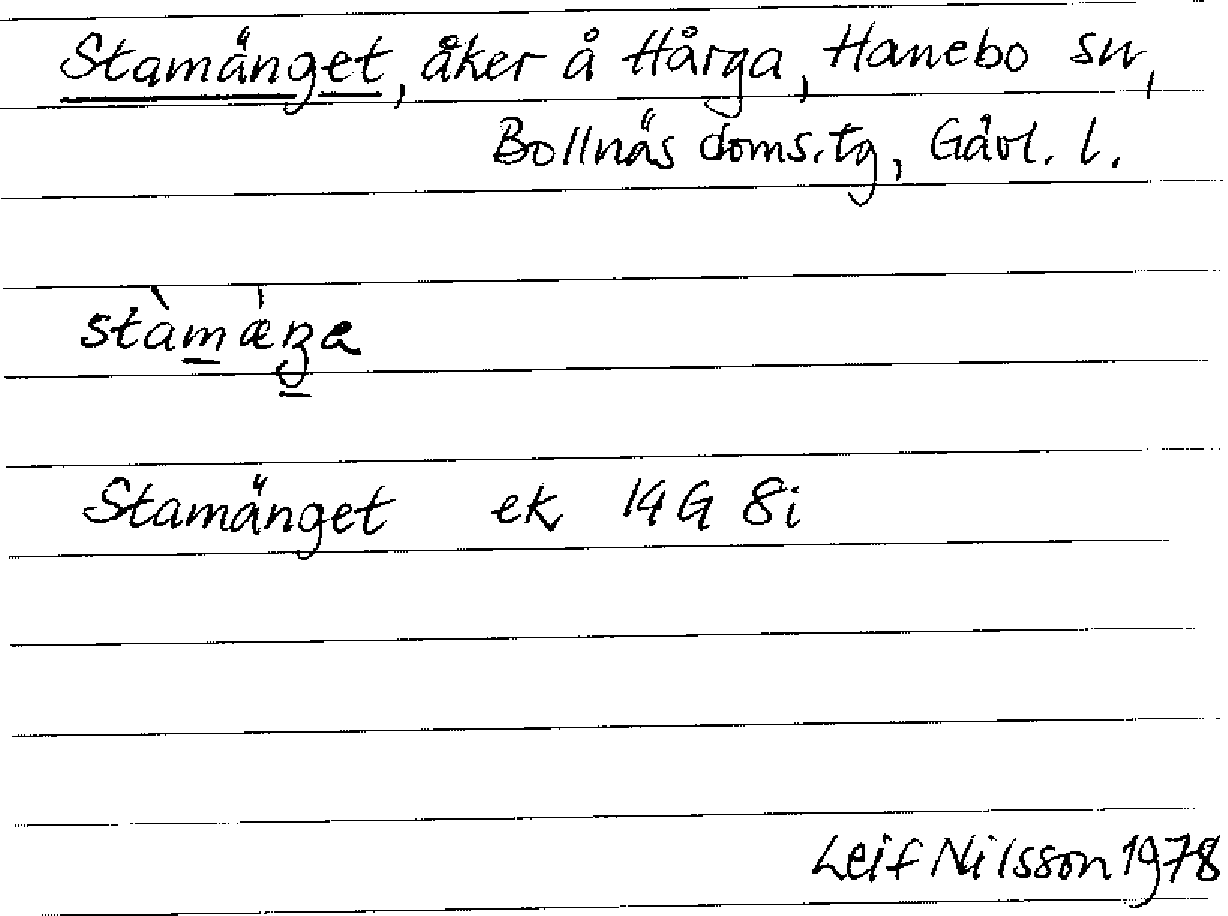 Stamänget, åker å Hårga, Hanebo sn,
Bollnäs doms.tg, Gävl. l.
stàmæ̀ŋa
Stamänget ek 14G 8i
Leif Nilsson 1978